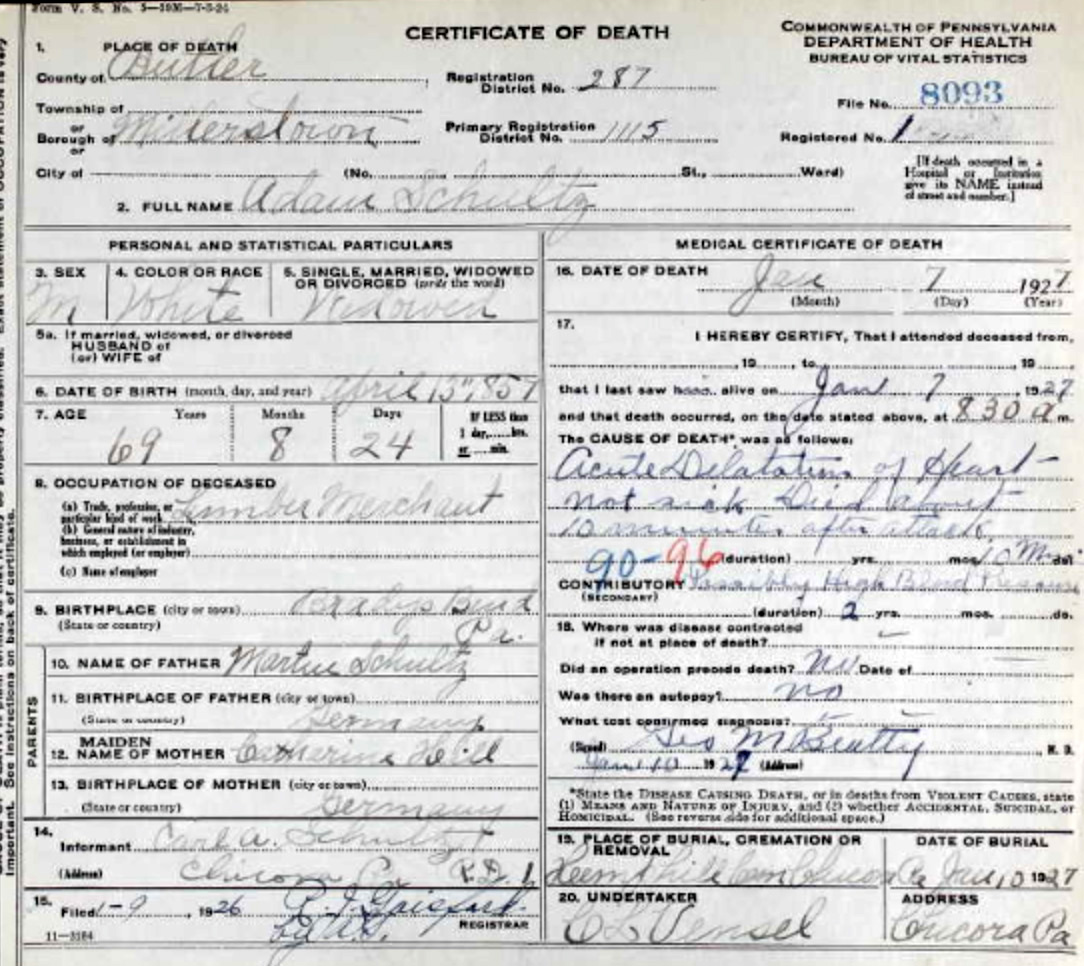 Form V. S. No. 5-50M-7-3-24
CERTIFICATE OF DEATH
COMMONWEALTH OF PENNSYLVANIA
DEPARTMENT OF HEALTH
BUREAU OF VITAL STATISTICS
1. PLACE OF DEATH
County of Butler
Registration District No. 287
File No. 8093
Township of
or
Borough of Millerstown
or
Primary Registration District No. 1115
Registered No. 1
City of (No. St., Ward)
[If death occurred in a Hospital or Institution give its NAME instead of street and number.]
2. FULL NAME Adam Schultz
PERSONAL AND STATISTICAL PARTICULARS
3. SEX M
4. COLOR OR RACE White
5. SINGLE, MARRIED, WIDOWED OR DIVORCED (write the word) Widowed
5a. If married, widowed, or divorced
HUSBAND of
(or) WIFE of
6. DATE OF BIRTH (month, day, and year) April 13" 857
7. AGE Years Months Days IF LESS than 1 day, hrs. or min.
69 8 24
8. OCCUPATION OF DECEASED
(a) Trade, profession, or particular kind of work Lumber Merchant
(b) General nature of industry, business, or establishment in which employed (or employer)
(c) Name of employer
9. BIRTHPLACE (city or town) Bradys Bend
(State or country) Pa.
PARENTS
10. NAME OF FATHER Martin Schultz
11. BIRTHPLACE OF FATHER (city or town)
(State or country) Germany
12. MAIDEN NAME OF MOTHER Catharine
13. BIRTHPLACE OF MOTHER (city or town)
(State or country) Germany
14. Informant Carl A. Schultz
(Address) Chicora Pa R.D. 1
15. Filed 1-9, 1926
REGISTRAR
11-3184
MEDICAL CERTIFICATE OF DEATH
16. DATE OF DEATH Jan 7 1927
(Month) (Day) (Year)
17. I HEREBY CERTIFY, That I attended deceased from
, 19 , to , 19
that I last saw him alive on Jan 7 1927
and that death occurred, on the date stated above, at 830 a m.
The CAUSE OF DEATH* was as follows:
Acute Dilatation of Heart-
not sick Died about
10 minutes after attack.
90-96 (duration) yrs. mos. 10 M. ds.
CONTRIBUTORY Possibly High Blood Pressure
(SECONDARY)
(duration) 2 yrs. mos. ds.
18. Where was disease contracted
if not at place of death?
Did an operation precede death? No Date of
Was there an autopsy? no
What test confirmed diagnosis?
(Signed) Geo M Beatty M. D.
Jan 10 1927 (Address)
*State the DISEASE CAUSING DEATH, or in deaths from VIOLENT CAUSES, state
(1) MEANS AND NATURE OF INJURY, and (2) whether ACCIDENTAL, SUICIDAL, or
HOMICIDAL. (See reverse side for additional space.)
19. PLACE OF BURIAL, CREMATION OR REMOVAL
DATE OF BURIAL
Cem Chicora Pa Jan 10 1927
20. UNDERTAKER ADDRESS
C L Vensel Chicora Pa
important. See instructions on back of certificate.